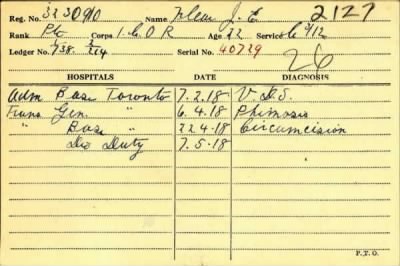 Reg. No. 3230910 Name J. E. 2127
Rank Pte Corps 1. C O R Age 22 Service 6/12
Ledger No. 738. 224 Serial No. 40729 26
HOSPITALS DATE DIAGNOSIS
Adm Base Toronto 7.2.18 V.D.S.
Trans Gen. " 6.4.18 Phimosis
" Base " 22.4.18 Circumcision
Dis Duty 7.5.18
P.T.O.